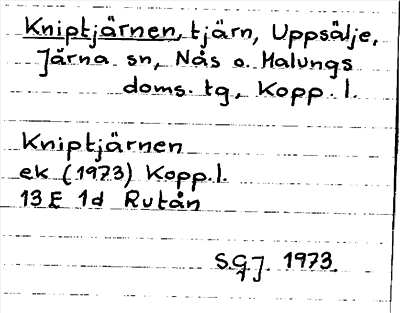 Kniptjärnen, tjärn, Uppsälje,
Järna sn, Nås o. Malungs
doms. tg, Kopp. l.
Kniptjärnen
ek (1973) Kopp. l.
13 E 1d Rutån
S.G.J. 1973.